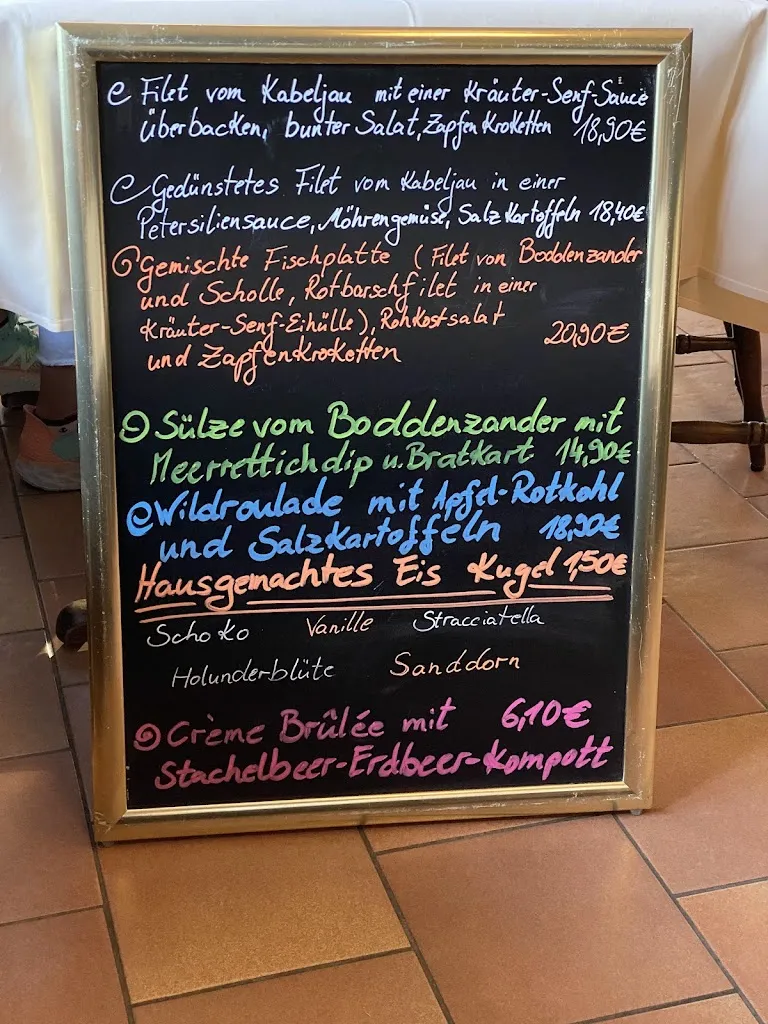 Filet vom Kabeljau mit einer Kräuter-Senf-Sauce
überbacken, bunter Salat, Zapfen Kroketten 18,90€
Gedünstetes Filet vom Kabeljau in einer
Petersiliensauce, Möhrengemüse, Salz Kartoffeln 18,40€
Gemischte Fischplatte (Filet von Boddenzander
und Scholle, Rotbarschfilet in einer
Kräuter-Senf-Eihülle), Rohkostsalat
und Zapfenkroketten 20,90€
Sülze vom Boddenzander mit
Meerrettichdip u. Bratkart 14,90€
Wildroulade mit Apfel-Rotkohl
und Salzkartoffeln 18,90€
Hausgemachtes Eis Kugel 1,50€
Schoko Vanille Stracciatella
Holunderblüte Sanddorn
Crème Brûlée mit 6,10€
Stachelbeer-Erdbeer-Kompott